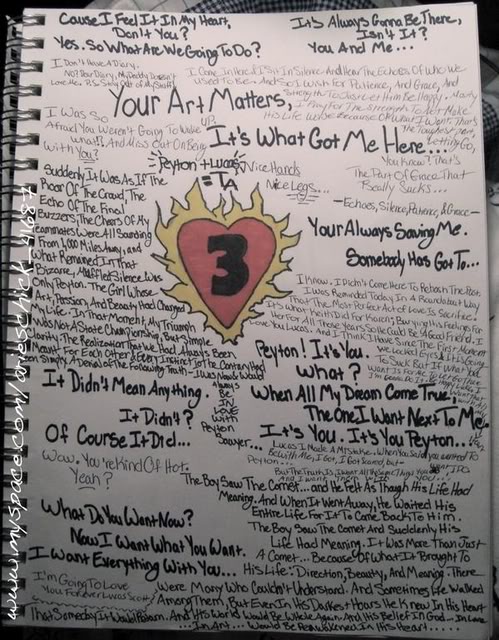 Cause I Feel It In My Heart,
Don't You?
Yes. So What Are We Going To Do?
It's Always Gonna Be There,
Isn't It?
You And Me...
I Don't Have A Diary.
No? Dear Diary, My Daddy Doesn't
Love Me. P.S. Stay Out Of My Stuff!
I Come In Here & I Sit In Silence And Hear The Echoes Of Who We
Used To Be And So I Wish For Patience, And Grace, And
Strength To Just Let Him Be Happy.
I Pray For The Strength To Not Make
His Life Worse Because Of What I Want. That's
The Toughest Part,
Letting Go,
You Know? That's
The Part Of Grace That
Really Sucks...
—Echoes, Silence, Patience, & Grace—
Your Art Matters,
It's What Got Me Here...
I Was So
Afraid You Weren't Going To Wake
Up. And Miss Out On Being
With You?
Peyton + Lucas
= TLA
Nice Hands
Nice Legs...
Suddenly It Was As If The
Roar Of The Crowd, The
Echo Of The Final
Buzzers, The Cheers Of My
Teammates Were All Sounding
From 1,000 Miles Away, And
What Remained In That
Bizarre, Muffled Silence Was
Only Peyton. The Girl Whose
Art, Passion, And Beauty Had Changed
My Life. In That Moment, My Triumph
Was Not A State Championship, But Simple
Clarity. The Realization That We Had Always Been
Meant For Each Other & Every Instinct To The Contrary Had
Simply A Denial Of The Following Truth - I Was Now & Would
Always
Be
In
Love
With
Peyton
Sawyer...
3
Your Always Saving Me.
Somebody Has Got To...
I Know. I Didn't Come Here To Rehash The Past.
I Was Reminded Today In A Roundabout Way
That The Most Perfect Act Of Love Is Sacrifice.
It's What Keith Did For Karen, Burying His Feelings For
Her For All Those Years So He Could Be A Good Friend. I
Love You Lucas. And I Think I Have Since The First Moment
We Locked Eyes
Peyton! It's You.
What?
When All My Dream Come True,
The One I Want Next To Me.
It's You. It's You Peyton...
It Didn't Mean Anything.
It Didn't?
Of Course It Did...
Wow. You're Kind Of Hot.
Yeah?
Lucas I Made A Mistake. When You Said You Wanted To
Be With Me, I Got, I Got Scared, But—
Peyton...
But The Truth Is, I Want All The Same Things You Do
And I Want Them With You...
The Boy Saw The Comet... And He Felt As Though His Life Had
Meaning. And When It Went Away, He Waited His
Entire Life For It To Come Back To Him.
The Boy Saw The Comet And Suddenly His
Life Had Meaning. It Was More Than Just
A Comet... Because Of What It Brought To
His Life: Direction, Beauty, And Meaning. There
Were Many Who Couldn't Understand. And Sometimes He Walked
Among Them, But Even In His Darkest Hours He Knew In His Heart
That Someday It Would Return. And His World Would Be Whole Again. And His Belief In God... In Love
...In Art... Would Be Reawakened In His Heart......
What Do You Want Now?
Now I Want What You Want.
I Want Everything With You...
I'm Going To Love
You Forever Lucas Scott
www.myspace.com/ariesxchick_41687